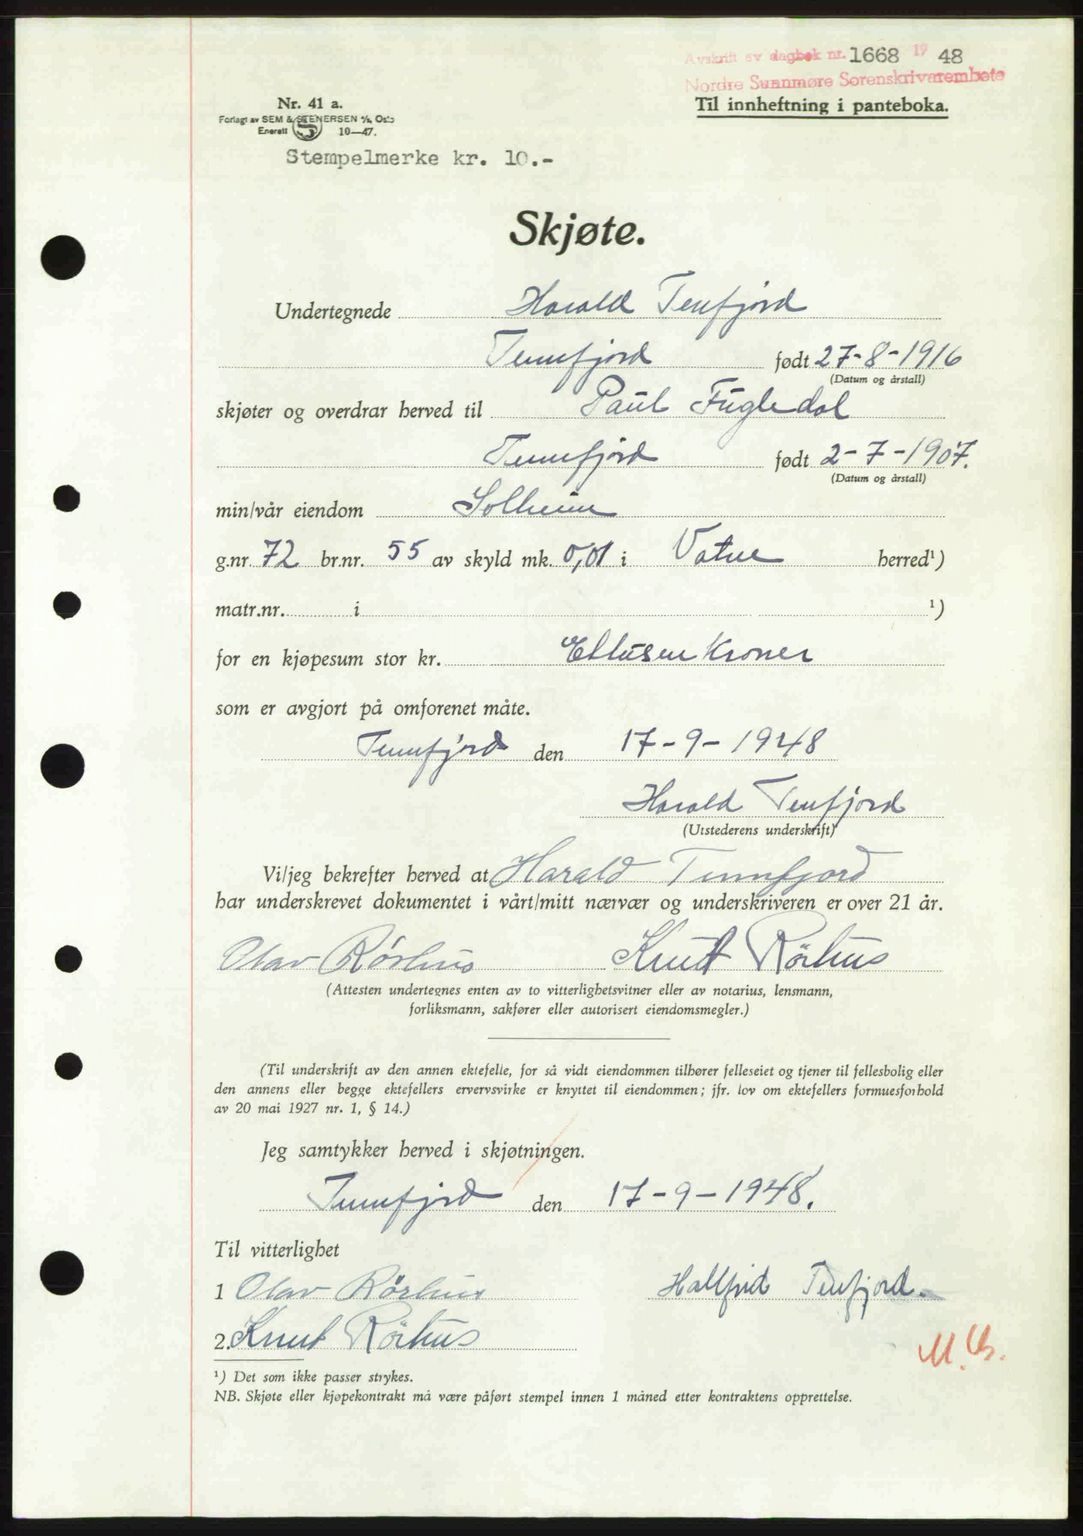 Avskrift av dagbok nr. 1668 19 48
Nordre Sunnmøre Sorenskriverembete
Til innheftning i panteboka.
Nr. 41 a.
Forlagt av SEM & STENERSEN A/S, Oslo
Enerett 10—47.
Stempelmerke kr. 10.-
Skjøte.
Undertegnede Harald Tenfjord
Tennfjord født 27-8-1916
(Datum og årstall)
skjøter og overdrar herved til Paul Fugledal
Tennfjord født 2-7-1907.
(Datum og årstall)
min/vår eiendom Solheim
g.nr 72 br.nr. 55 av skyld mk. 0,01 i Vatne herred¹)
matr.nr. i ¹)
for en kjøpesum stor kr. Ettusen Kroner
som er avgjort på omforenet måte.
Tennfjord den 17-9-1948
Harald Tenfjord
(Utstederens underskrift)
Vi/jeg bekrefter herved at Harald Tennfjord
har underskrevet dokumentet i vårt/mitt nærvær og underskriveren er over 21 år.
Olav Rörhus Knut Rörhus
(Attesten undertegnes enten av to vitterlighetsvitner eller av notarius, lensmann,
forliksmann, sakfører eller autorisert eiendomsmegler.)
(Til underskrift av den annen ektefelle, for så vidt eiendommen tilhører felleseiet og tjener til fellesbolig eller
den annens eller begge ektefellers ervervsvirke er knyttet til eiendommen; jfr. lov om ektefellers formuesforhold
av 20 mai 1927 nr. 1, § 14.)
Jeg samtykker herved i skjøtningen.
Tennfjord den 17-9-1948.
Til vitterlighet
1 Olav Rörhus Hallfrid Tenfjord.
2. Knut Rörhus
¹) Det som ikke passer strykes.
NB. Skjøte eller kjøpekontrakt må være påført stempel innen 1 måned etter kontraktens opprettelse.